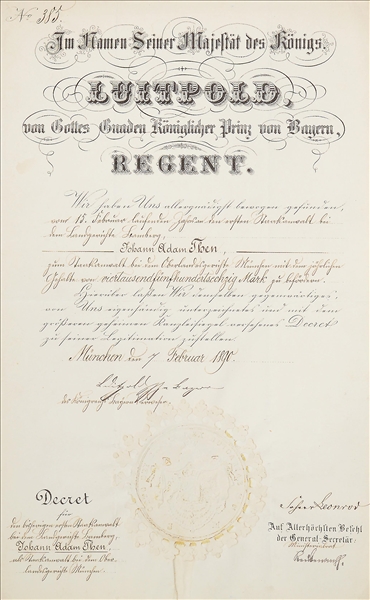 No 385.
Im Namen Seiner Majestät des Königs.
LUITPOLD,
von Gottes Gnaden Königlicher Prinz von Bayern,
REGENT.
Wir haben Uns allergnädigst bewogen gefunden,
vom 15. Februar laufenden Jahres den ersten Staatsanwalt bei
dem Landgerichte Bamberg,
Johann Adam Then,
zum Staatsanwalt bei dem Oberlandesgerichte München mit dem jährlichen
Gehalte von viertausendfünfhundertsechzig Mark zu befördern.
Hierüber lassen Wir demselben gegenwärtiges,
von Uns eigenhändig unterzeichnetes und mit dem
größeren geheimen Kanzleisiegel versehenes Decret
zu seiner Legitimation zustellen.
München den 7 Februar 1890.
Luitpold Prinz von Bayern
des Königreichs Bayern Verweser.
Decret
für
den bisherigen ersten Staatsanwalt
bei dem Landgerichte Bamberg,
Johann Adam Then,
als Staatsanwalt bei dem Ober-
landesgerichte München.
Leonrod
Auf Allerhöchsten Befehl
der General-Secretär: